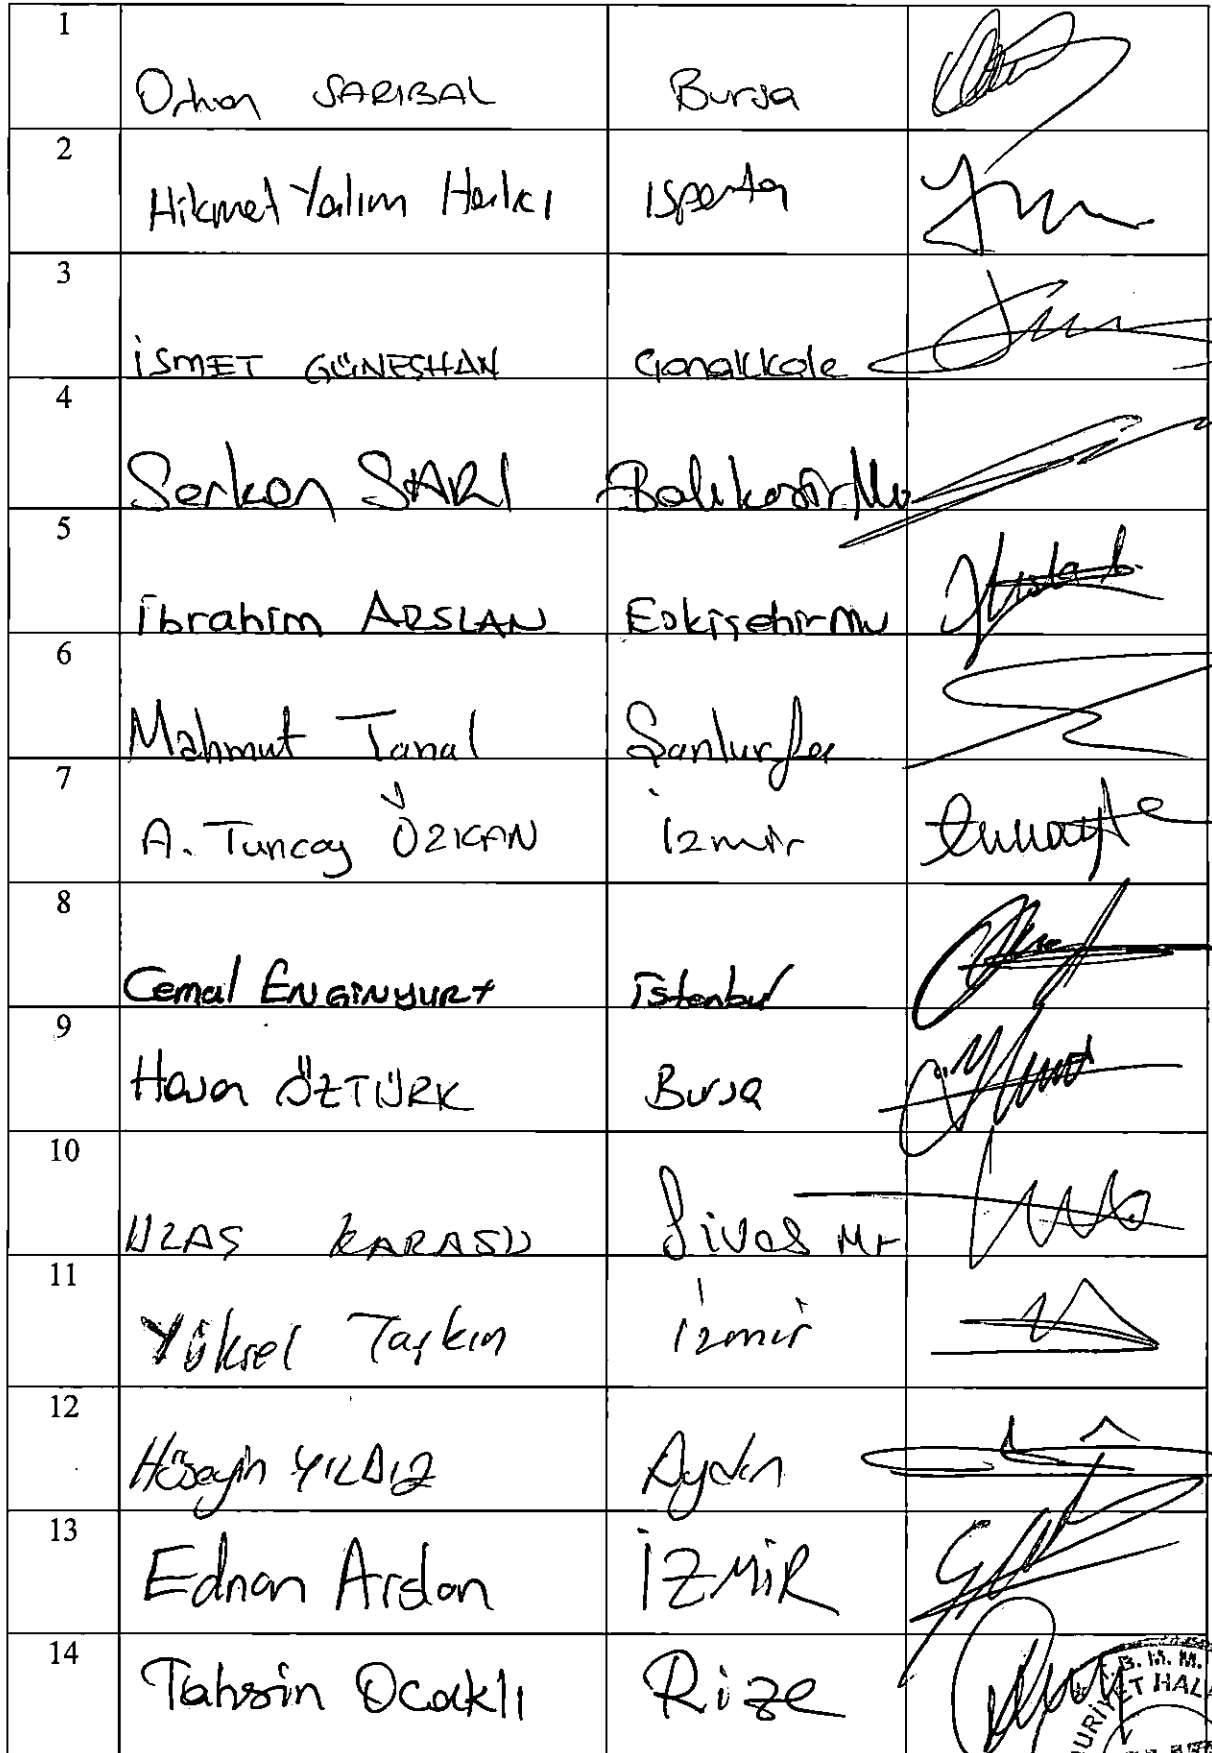 1
Orhan SARIBAL Bursa
2
Hikmet Yalım Halıcı Isparta
3
İSMET GÜNEŞHAN Çanakkale
4
Serkan SARI Balıkesir Mv
5
İbrahim ARSLAN Eskişehir Mv
6
Mahmut Tanal Şanlıurfa
7
A. Tuncay ÖZKAN İzmir
8
Cemal ENGİNYURT İstanbul
9
Hasan ÖZTÜRK Bursa
10
ULAŞ KARASU Sivas Mv
11
Yüksel Taşkın İzmir
12
Hüseyin YILDIZ Aydın
13
Ednan Arslan İZMİR
14
Tahsin Ocaklı Rize
B. M. M.